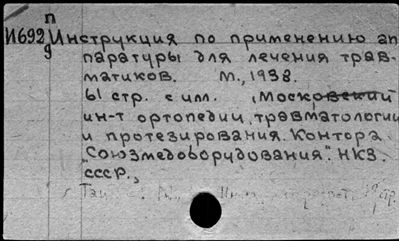 п
И692 Инструкция по применению ап
9
паратуры для лечения трав-
матиков. М., 1938.
61 стр. с илл. , Московский
ин-т ортопедии, травматологии
и протезирования. Контора
"Союзмедоборудования". НКЗ.
СССР.,